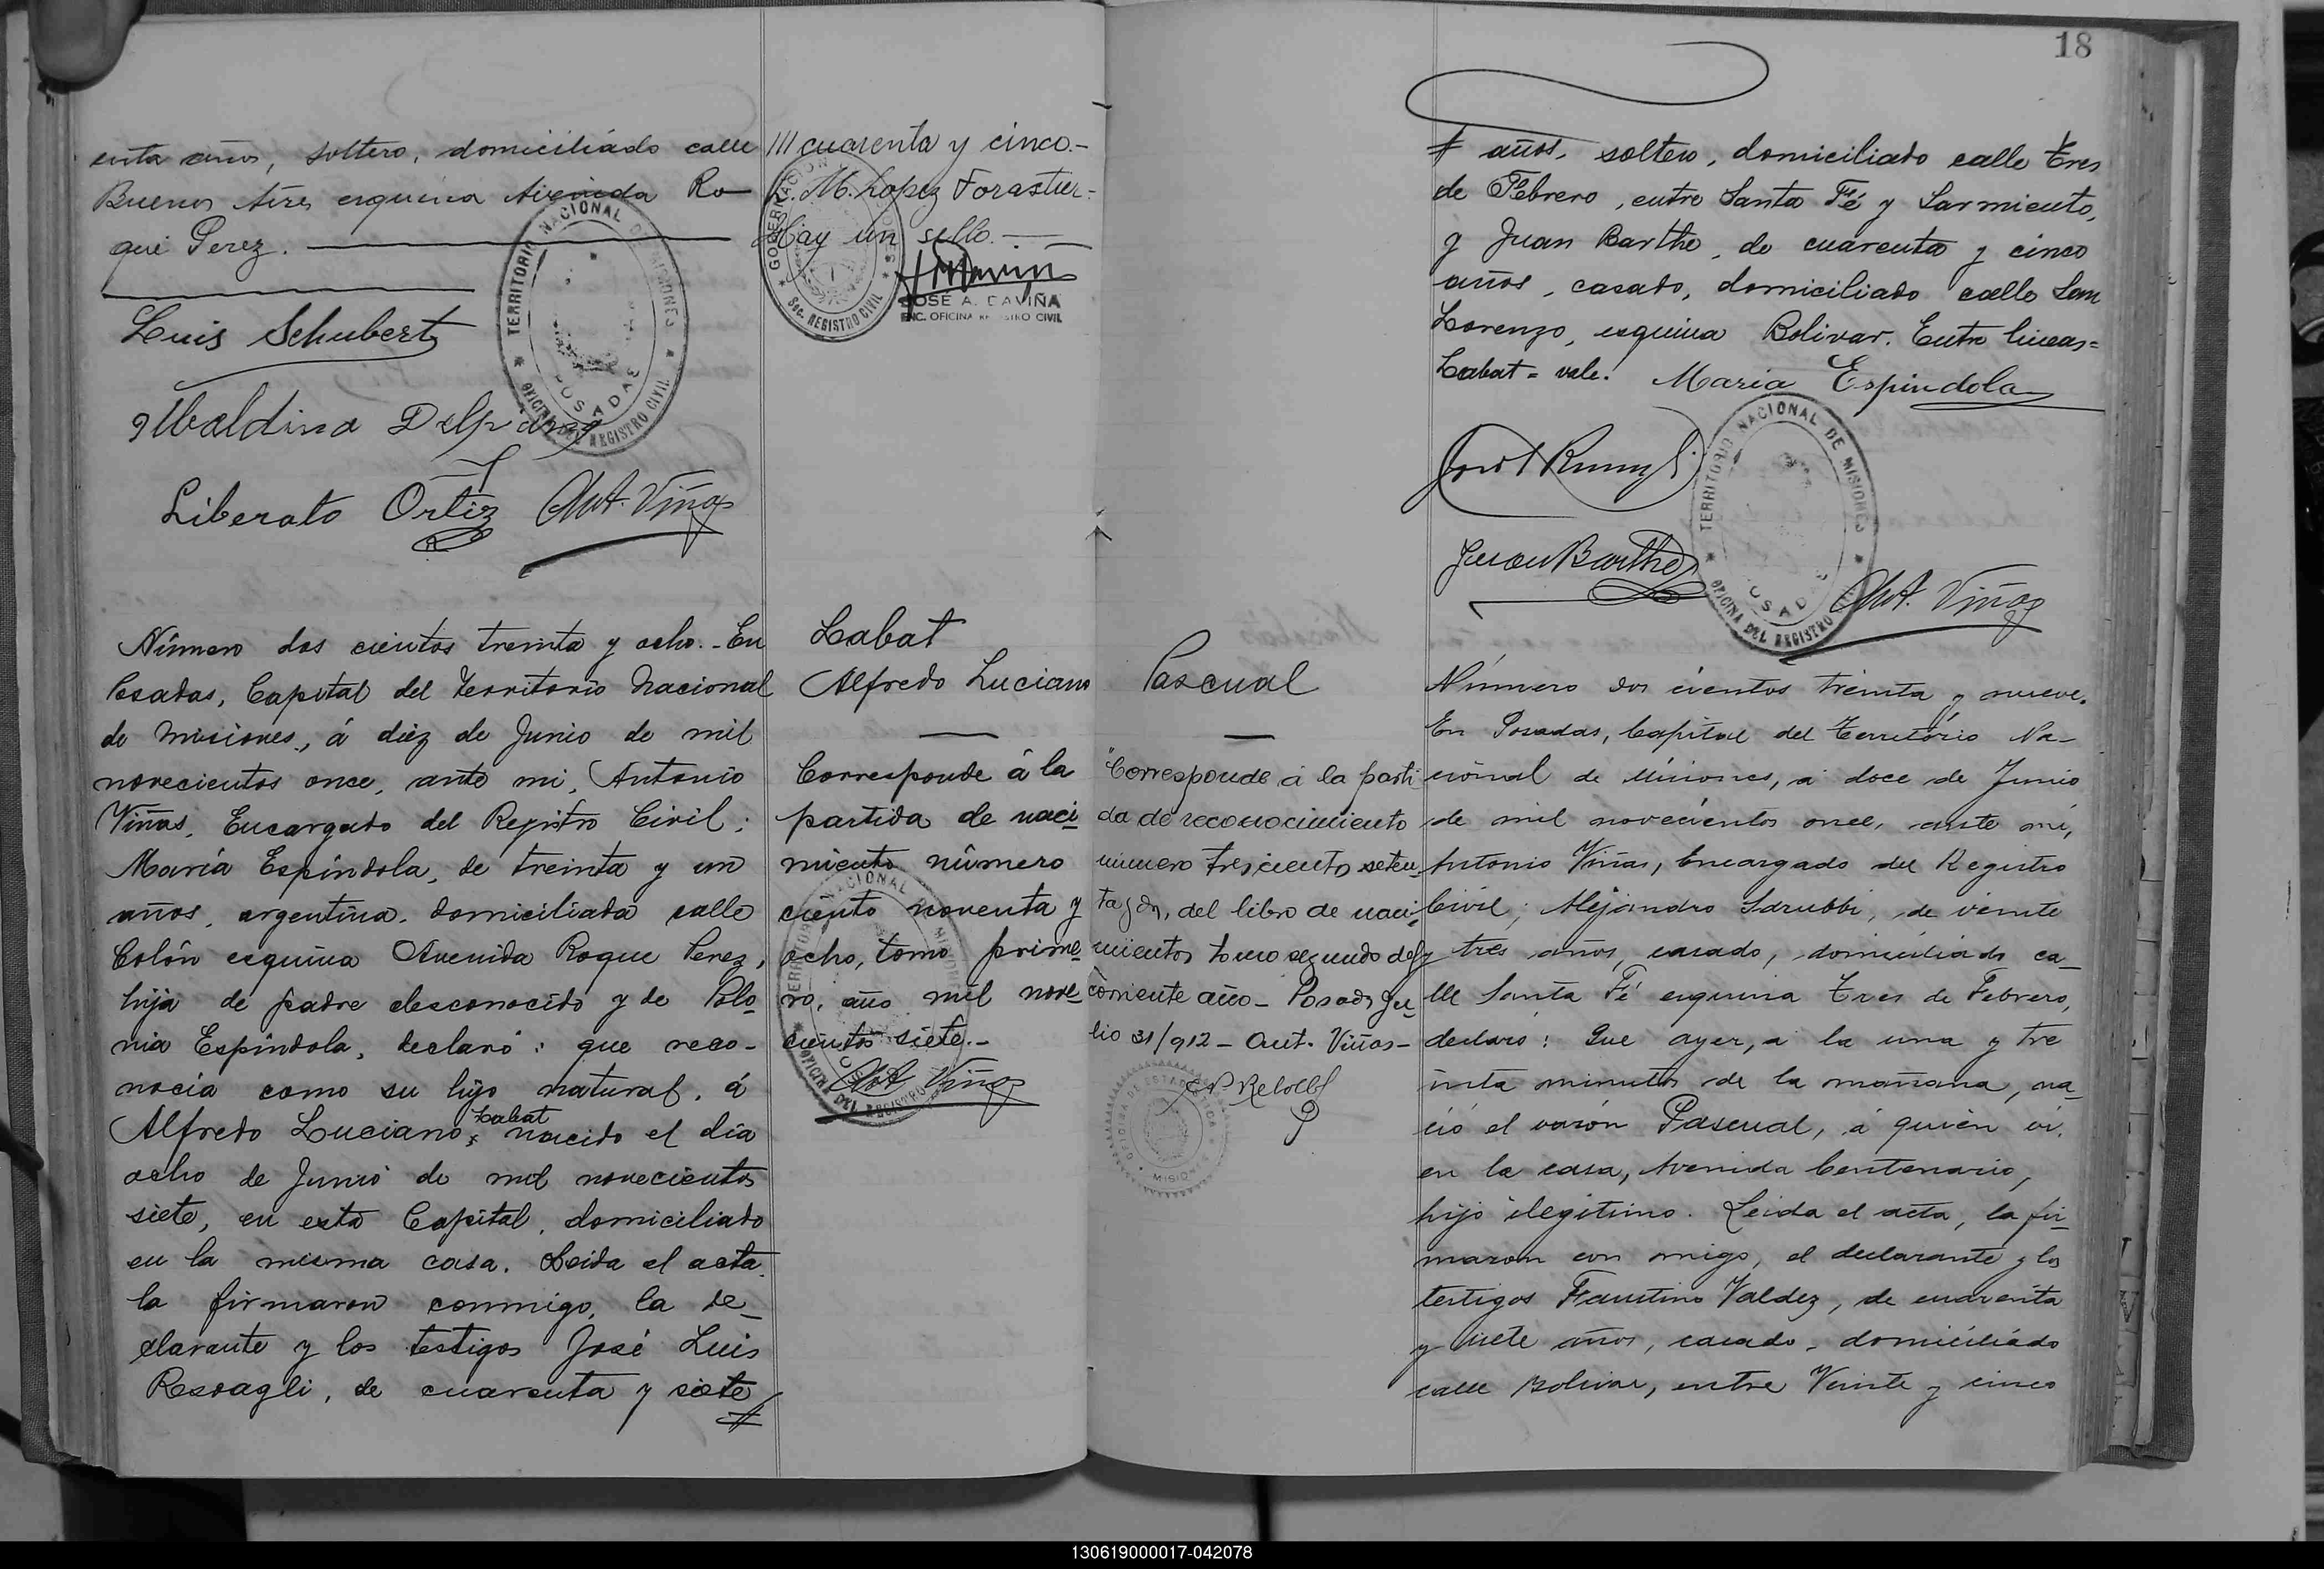 enta años, soltero, domiciliado calle
Buenos Aires esquina Avenida Ro-
que Perez.
Luis Schubert
Ubaldina
Liberato Ortiz Ant. Viñas
/// cuarenta y cinco.-
L. M. Lopez Forastier-
Hay un sello.-
JOSE A. DAVIÑA
ENC. OFICINA REGISTRO CIVIL
Sec. REGISTRO CIVIL
TERRITORIO NACIONAL DE MISIONES
POSADAS
OFICINA DEL REGISTRO CIVIL
Número dos cientos treinta y ocho.- En
Posadas, Capital del Territorio Nacional
de Misiones, á diez de Junio de mil
novecientos once, ante mi, Antonio
Viñas, Encargado del Registro Civil;
María Espíndola, de treinta y un
años, argentina, domiciliada calle
Colón esquina Avenida Roque Perez,
hija de padre desconocido y de Polo-
nia Espíndola, declaró: que reco-
nocía como su hijo natural, á
Labat
Alfredo Luciano, nacido el día
ocho de Junio de mil novecientos
siete, en esta Capital, domiciliado
en la misma casa. Leida el acta,
la firmaron conmigo, la de-
clarante y los testigos José Luis
Resoagli, de cuarenta y siete
#
Labat
Alfredo Luciano
Corresponde á la
partida de naci-
miento número
ciento noventa y
ocho, tomo prime-
ro, año mil nove-
cientos siete.-
Ant. Viñas
18
# años, soltero, domiciliado calle Tres
de Febrero, entre Santa Fé y Sarmiento,
y Juan Barthe, de cuarenta y cinco
años, casado, domiciliado calle San
Lorenzo, esquina Bolivar. Entre lineas=
Labat = vale. Maria Espindola
Juan Barthe
Ant. Viñas
TERRITORIO NACIONAL DE MISIONES
POSADAS
OFICINA DEL REGISTRO
Pascual
"Corresponde á la parti-
da de reconocimiento
número trescientos seten-
ta y dos, del libro de naci-
mientos tomo segundo del
corriente año- Posadas Ju-
lio 31/912 - Ant. Viñas-
Número dos cientos treinta y nueve.
En Posadas, Capital del Territorio Na-
cional de Misiones, á doce de Junio
de mil novecientos once, ante mi,
Antonio Viñas, Encargado del Registro
Civil; Alejandro Sdrubbi, de veinte
y tres años, casado, domiciliado ca-
lle Santa Fé esquina Tres de Febrero,
declaró: Que ayer, á la una y tre
inta minutos de la mañana, na-
ció el varón Pascual, á quien vi,
en la casa, Avenida Centenario,
hijo ilegítimo. Leida el acta, la fir-
maron con migo, el declarante y los
testigos Faustino Valdez, de cuarenta
y siete años, casado, domiciliado
calle Bolivar, entre Veinte y cinco
130619000017-042078